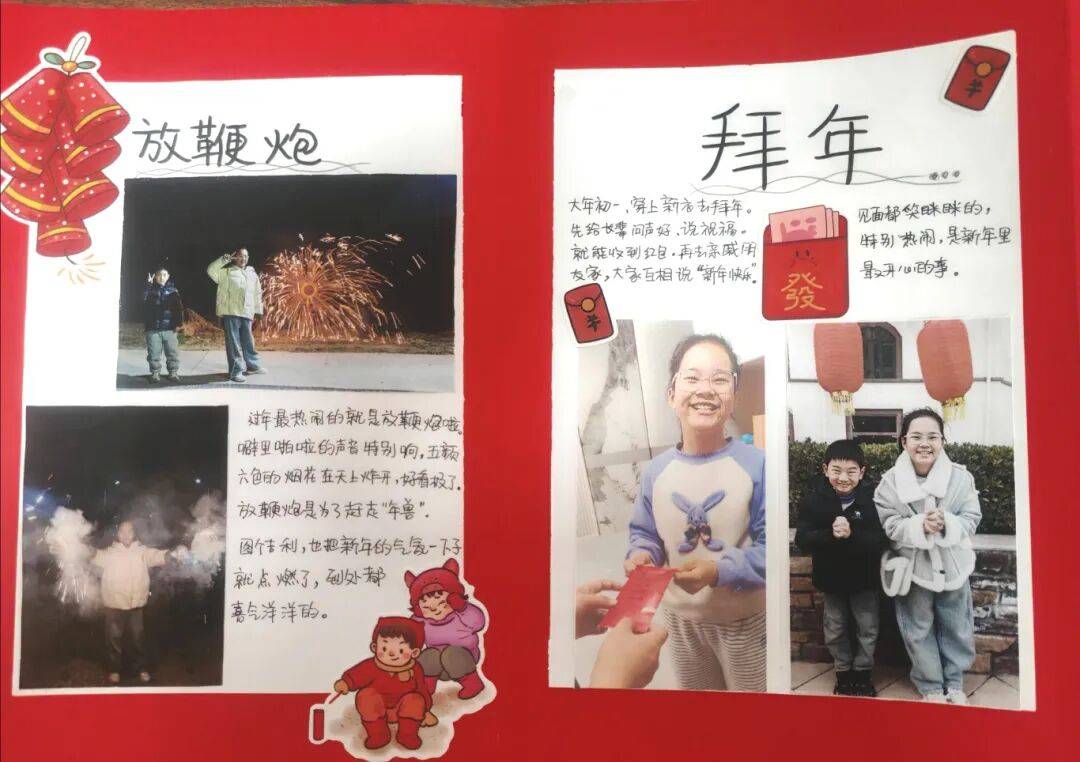 放鞭炮
过年最热闹的就是放鞭炮啦。
噼里啪啦的声音特别响,五颜
六色的烟花在天上炸开,好看极了。
放鞭炮是为了赶走"年兽"。
图个吉利,也把新年的气氛一下子
就点燃了,到处都
喜气洋洋的。
拜年
大年初一,穿上新衣去拜年。
先给长辈问声好、说祝福。
就能收到红包。再去亲戚朋
友家,大家互相说"新年快乐"
见面都笑眯眯的,
特别热闹,是新年里
最开心的事。
發